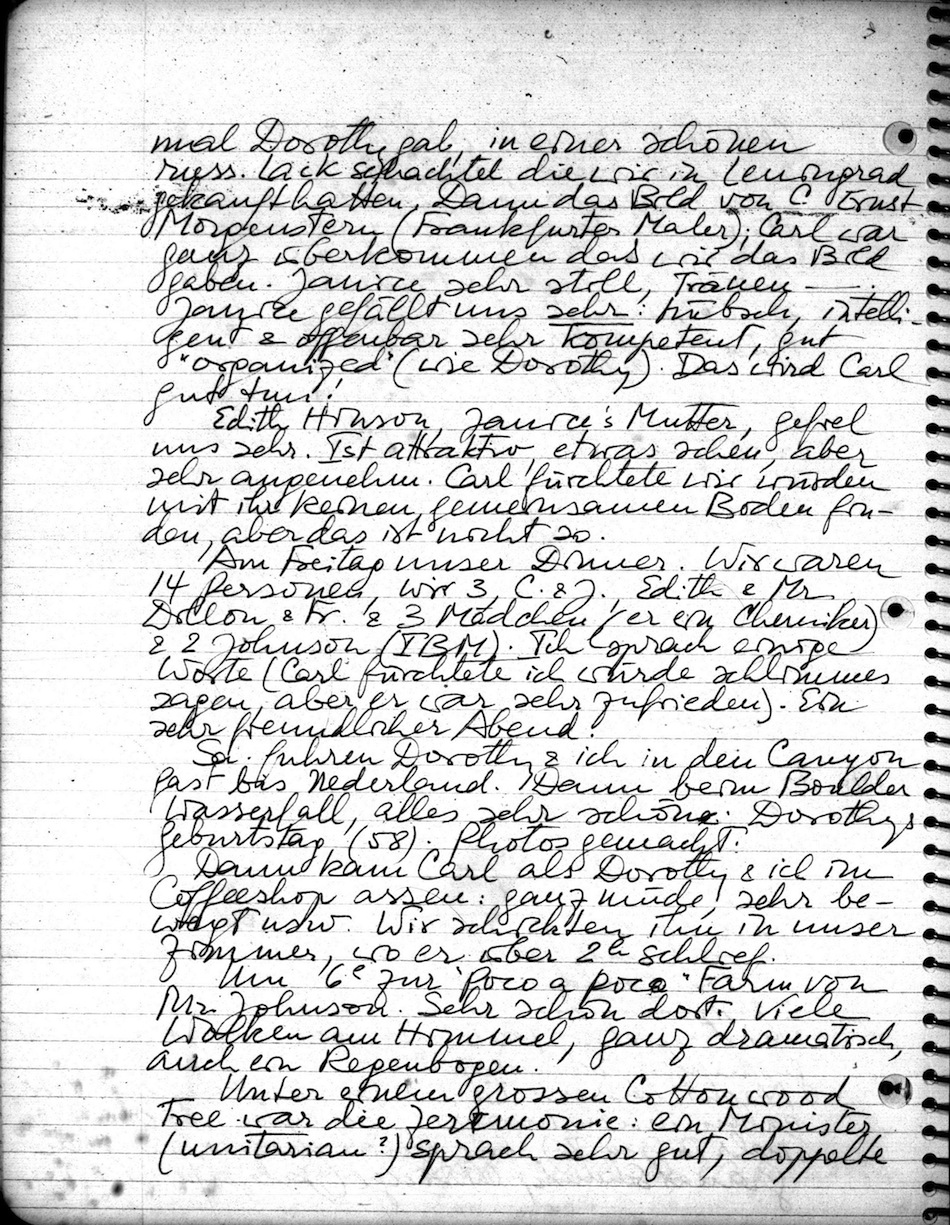 mal Dorothy gab, in einer schönen
russ. Lack schachtel die wir in Leningrad
gekauft hatten. Dann das Bild von C. Ernst
Morgenstern (Frankfurter Maler); Carl war
ganz überkommen das wir das Bild
gaben. Janice sehr still, Tränen —.
Janice gefällt uns sehr: hübsch, intelli-
gent & offenbar sehr kompetent, gut
"organized" (wie Dorothy). Das wird Carl
gut tun!
Edith Hinson, Janice's Mutter, gefiel
uns sehr. Ist attraktiv, etwas scheu, aber
sehr angenehm. Carl fürchtete wir würden
mit ihr keinen gemeinsamen Boden fin-
den, aber das ist nicht so.
Am Freitag unser Dinner. Wir waren
14 Personen, wir 3, C. & J., Edith & Mr
Dillon & Fr. & 3 Mädchen (er ein Chemiker)
& 2 Johnson (IBM). Ich sprach einige
Worte (Carl fürchtete ich würde schlimmes
sagen, aber er war sehr zufrieden). Ein
sehr freundlicher Abend.
Sa. fuhren Dorothy & ich in den Canyon
fast bis Nederland. Dann beim Boulder
Wasserfall, alles sehr schön. Dorothys
Geburtstag (58). Photos gemacht.
Dann kam Carl als Dorothy & ich im
Coffeeshop assen: ganz müde, sehr be-
wegt usw. Wir schickten ihn in unser
Zimmer, wo er über 2h schlief.
Um 6e zur "poco a poco" Farm von
Mr. Johnson. Sehr schön dort. Viele
Wolken am Himmel, ganz dramatisch,
auch ein Regenbogen.
Unter einem grossen Cottonwood
Tree war die Zeremonie: ein Minister
(unitarian?) sprach sehr gut, doppelte